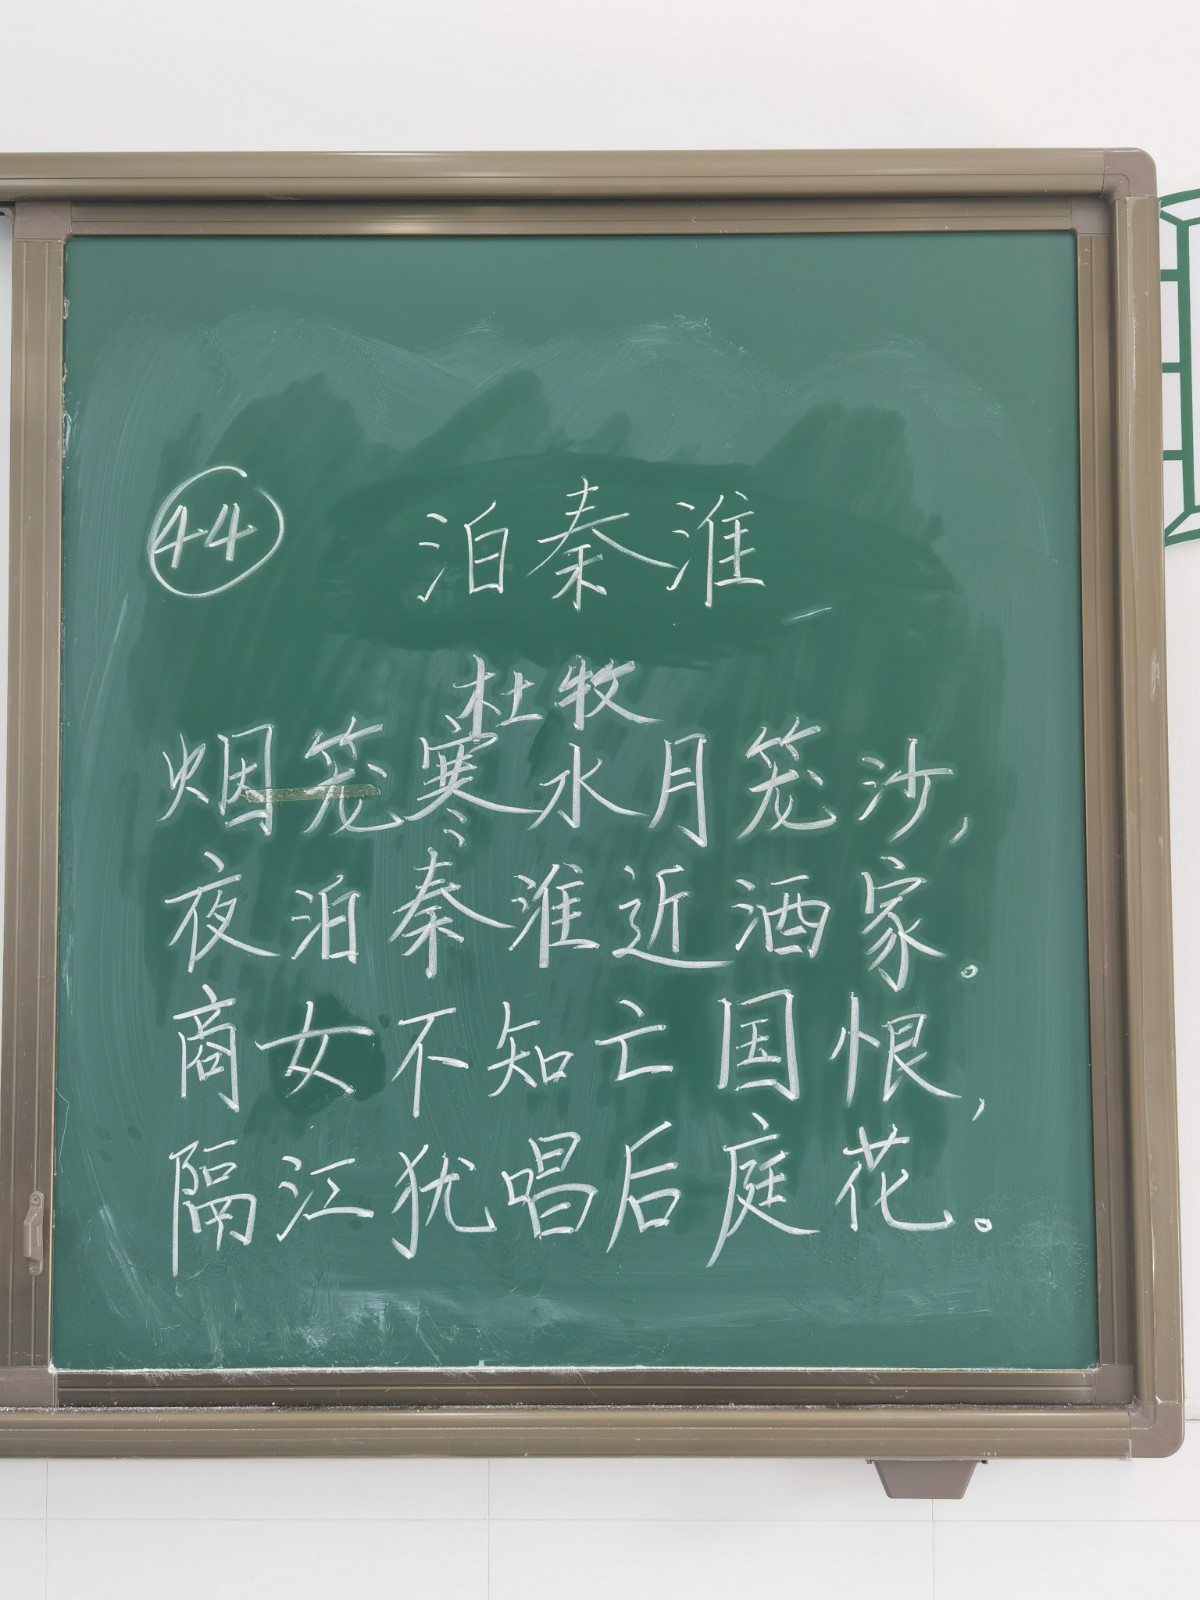 44 泊秦淮
杜牧
烟笼寒水月笼沙，
夜泊秦淮近酒家。
商女不知亡国恨，
隔江犹唱后庭花。